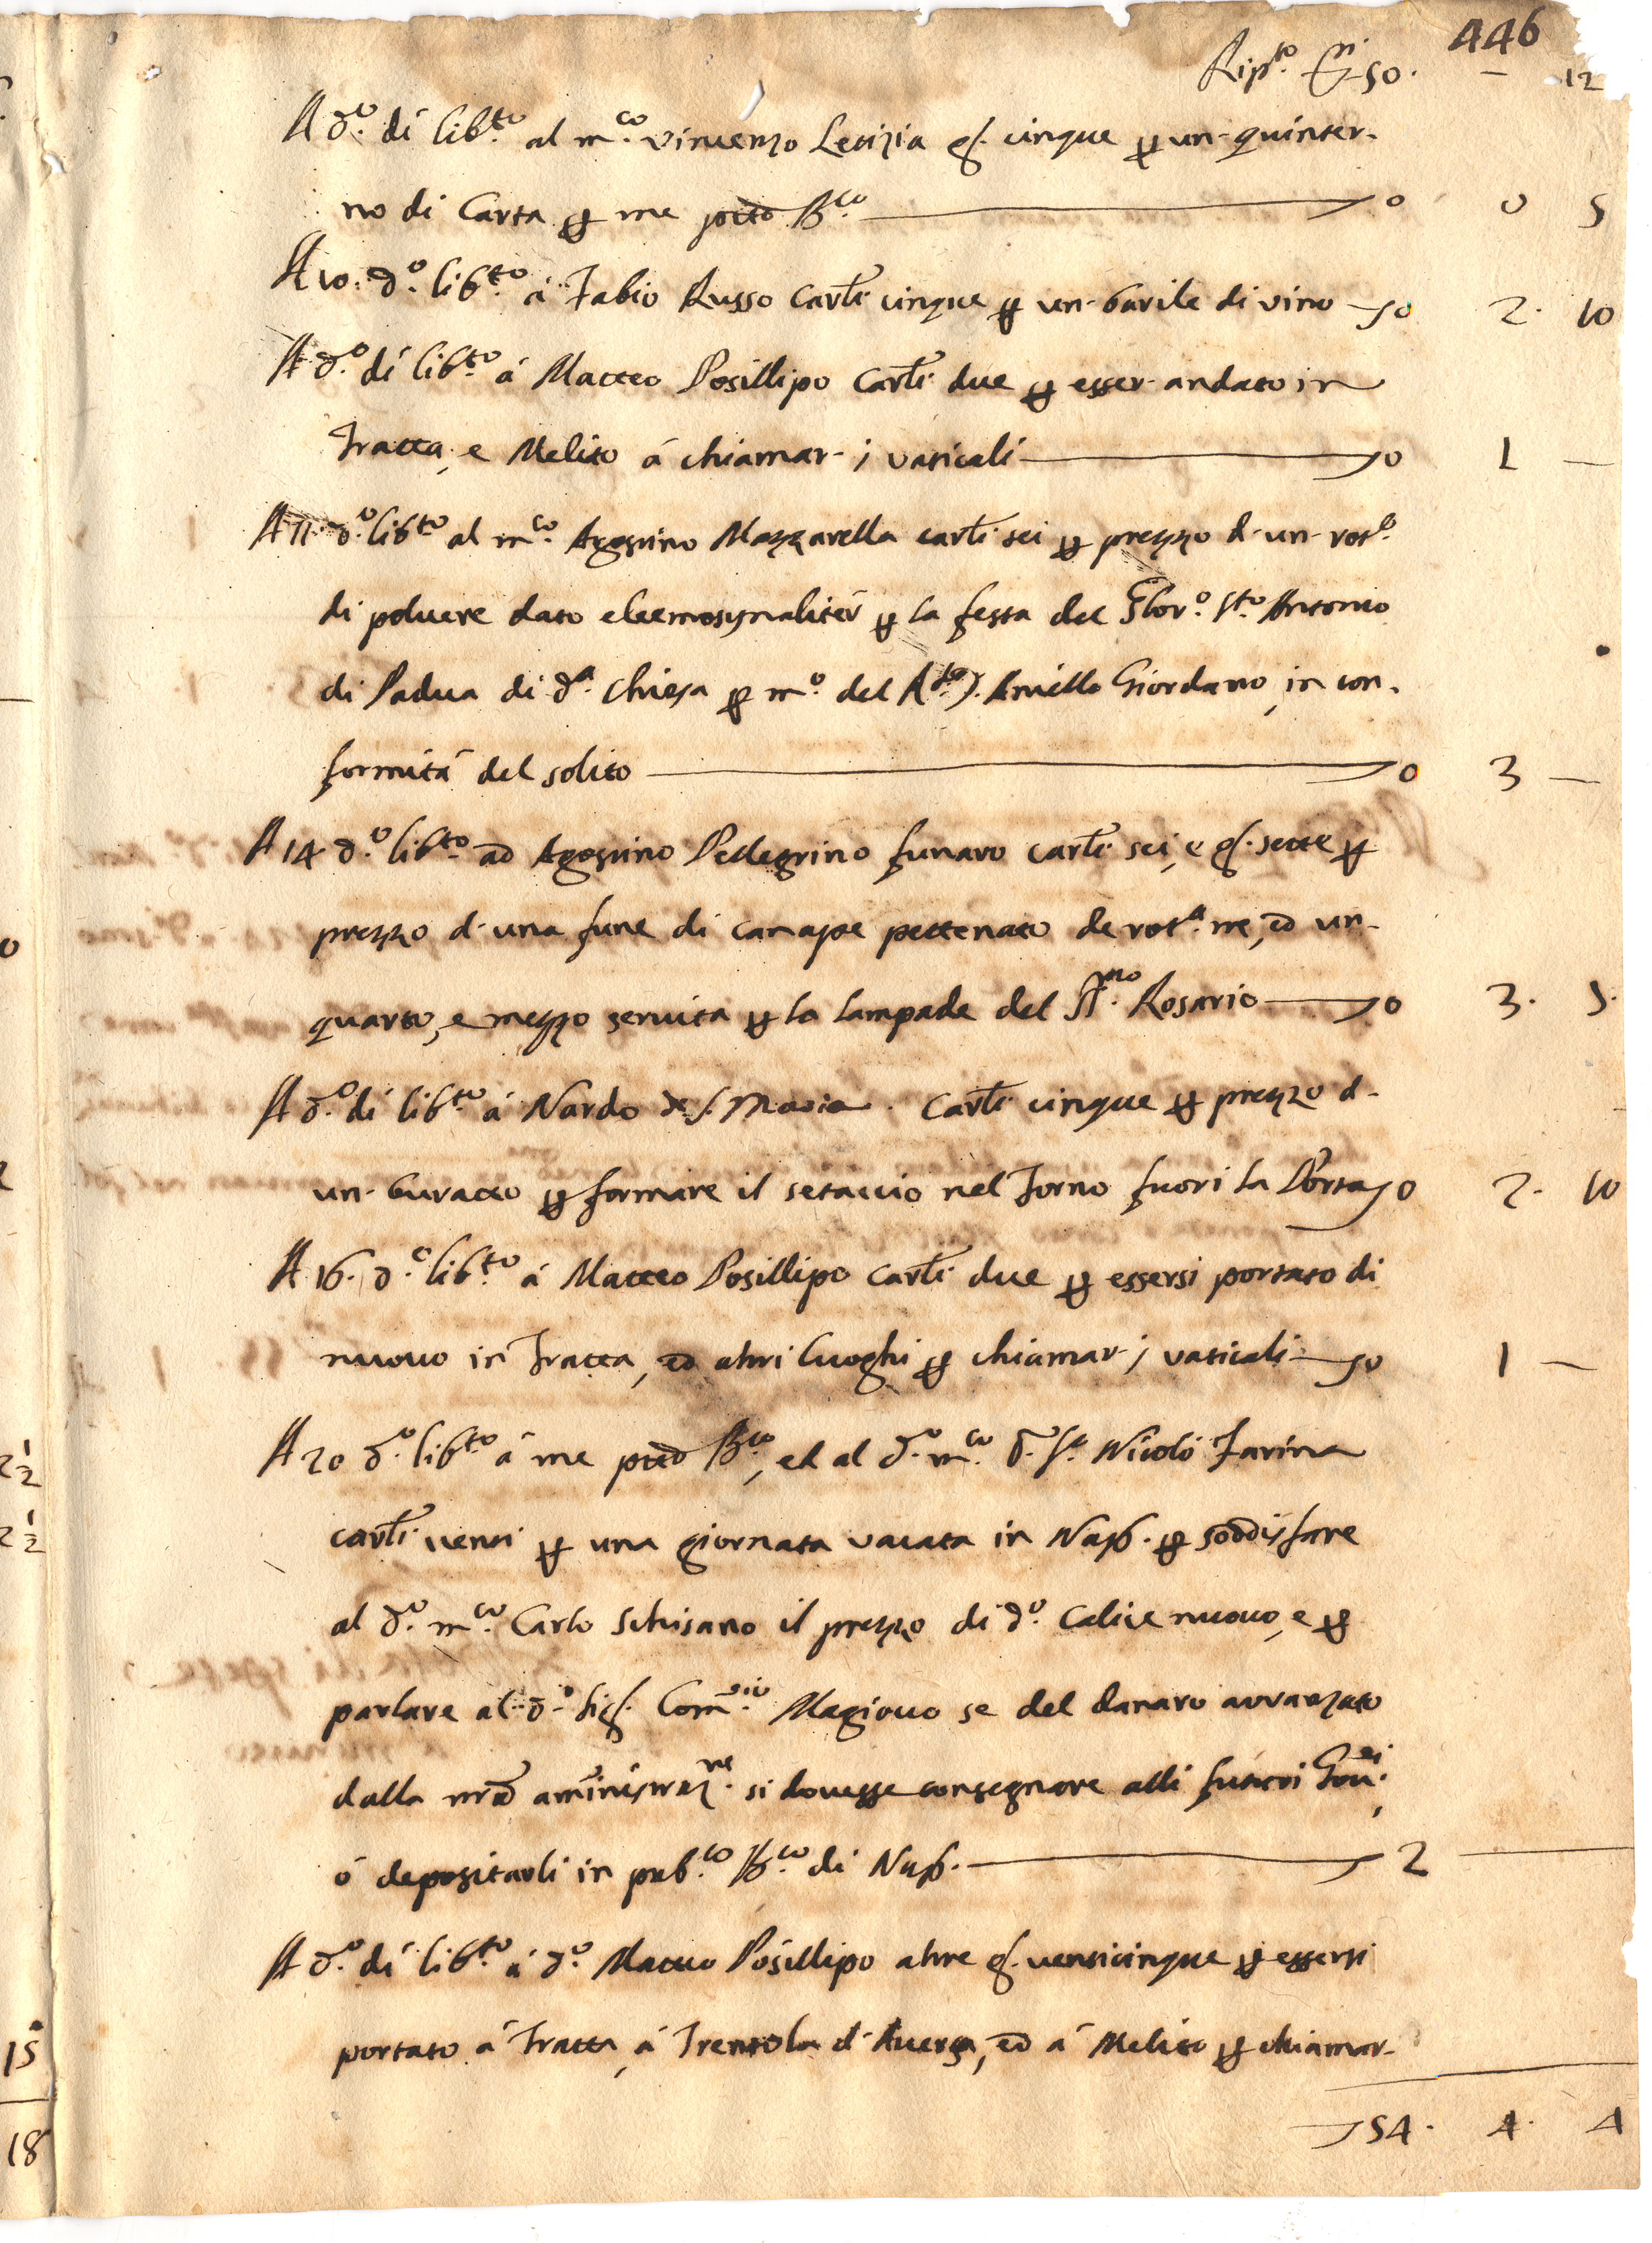 446
Rip.to D.ti 50. – 12
A d.o dí lib.to al m.co Vincenzo Letizia g.a cinque p un-quinter-
no di Carta p me ptto B.co 0 0 5
A 10. d.o lib.to á Fabio Russo Carli cinque p un-barile di vino 0 2. 10
A d.o dí lib.to á Matteo Posillipo Carli due p esser-andato in
Fratta, e Melito á chiamar-i vaticali 0 1 –
A 11. d.o lib.to al m.co Agostino Mazzarella carli sei p prezzo d-un-rot.o
di poluere dato eleemosynalitér p la festa del Glor.o S.to Antonio
di Padua di d.a Chiesa p m.o del R.do D. Aniello Giordano, in con-
formitá del solito 0 3 –
A 14 d.o lib.to ad Agostino Pellegrino funaro carli sei, e g.a sette p
prezzo d-una fune di canape pettenato de rot.a tre, ed un-
quarto, e mezzo seruita p la lampade del SS.mo Rosario 0 3. 5.
A d.o dí lib.to á Nardo de S. Maria. Carli cinque p prezzo d-
un-buratto p formare il setaccio nel Forno fuori la Porta 0 2. 10
A 16. d.o lib.to á Matteo Posillipo Carli due p essersi portato di
nuouo in Fratta, ed altri luoghi p chiamar-i vaticali 0 1 –
A 20 d.o lib.to á me ptto B.co, ed al d.o m.co D.r S.r Nicoló Farina
carli venti p una giornata vacata in Nap. p soddisfare
al d.o m.co Carlo Schisano il prezzo di d.o Calice nuouo, e p
parlare al d.o Sig. Com.rio Magiouo se del danaro auvanzato
dalla nrã amministraz.ne si douesse consegnare alli futuri Gou.ri,
ó depositarli in pub.co B.co di Nap. 2
A d.o dí lib.to á d.o Matteo Posillipo altre g.a venticinque p essersi
portato á Fratta, á Trentola d-Auersa, ed á Melito p chiamar-
54. 4. 4